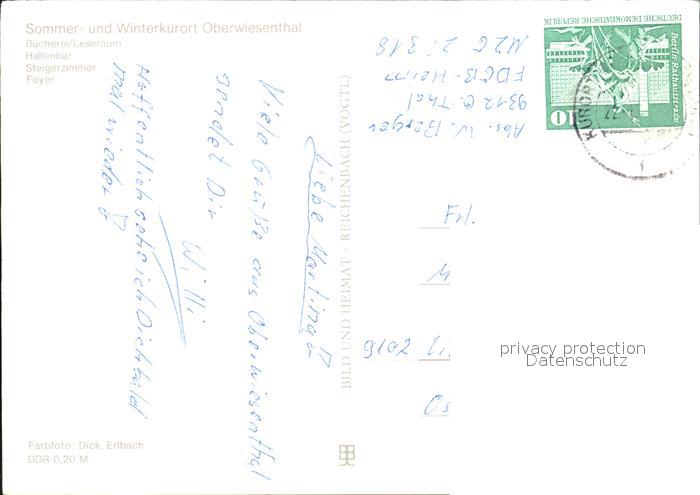 Sommer- und Winterkurort Oberwiesenthal
Bücherei/Leseraum
Hallenbar
Steigerzimmer
Foyer
Liebe Martina!
Viele Grüße aus Oberwiesenthal
sendet Dir
Willi
Hoffentlich sehe ich Dich bald
mal wieder!
Farbfoto: Dick, Erlbach
DDR 0,20 M
BILD UND HEIMAT · REICHENBACH (VOGTL)
Abs. W. Berger
9312 O. Thal
FDGB-Heim
MZG Zi 318
DEUTSCHE DEMOKRATISCHE REPUBLIK
Berlin, Rathausstraße
10
KUROR
Frl.
M
privacy protection
Datenschutz